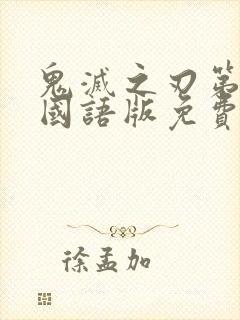 鬼滅之刃第
國語版免費
徐孟加